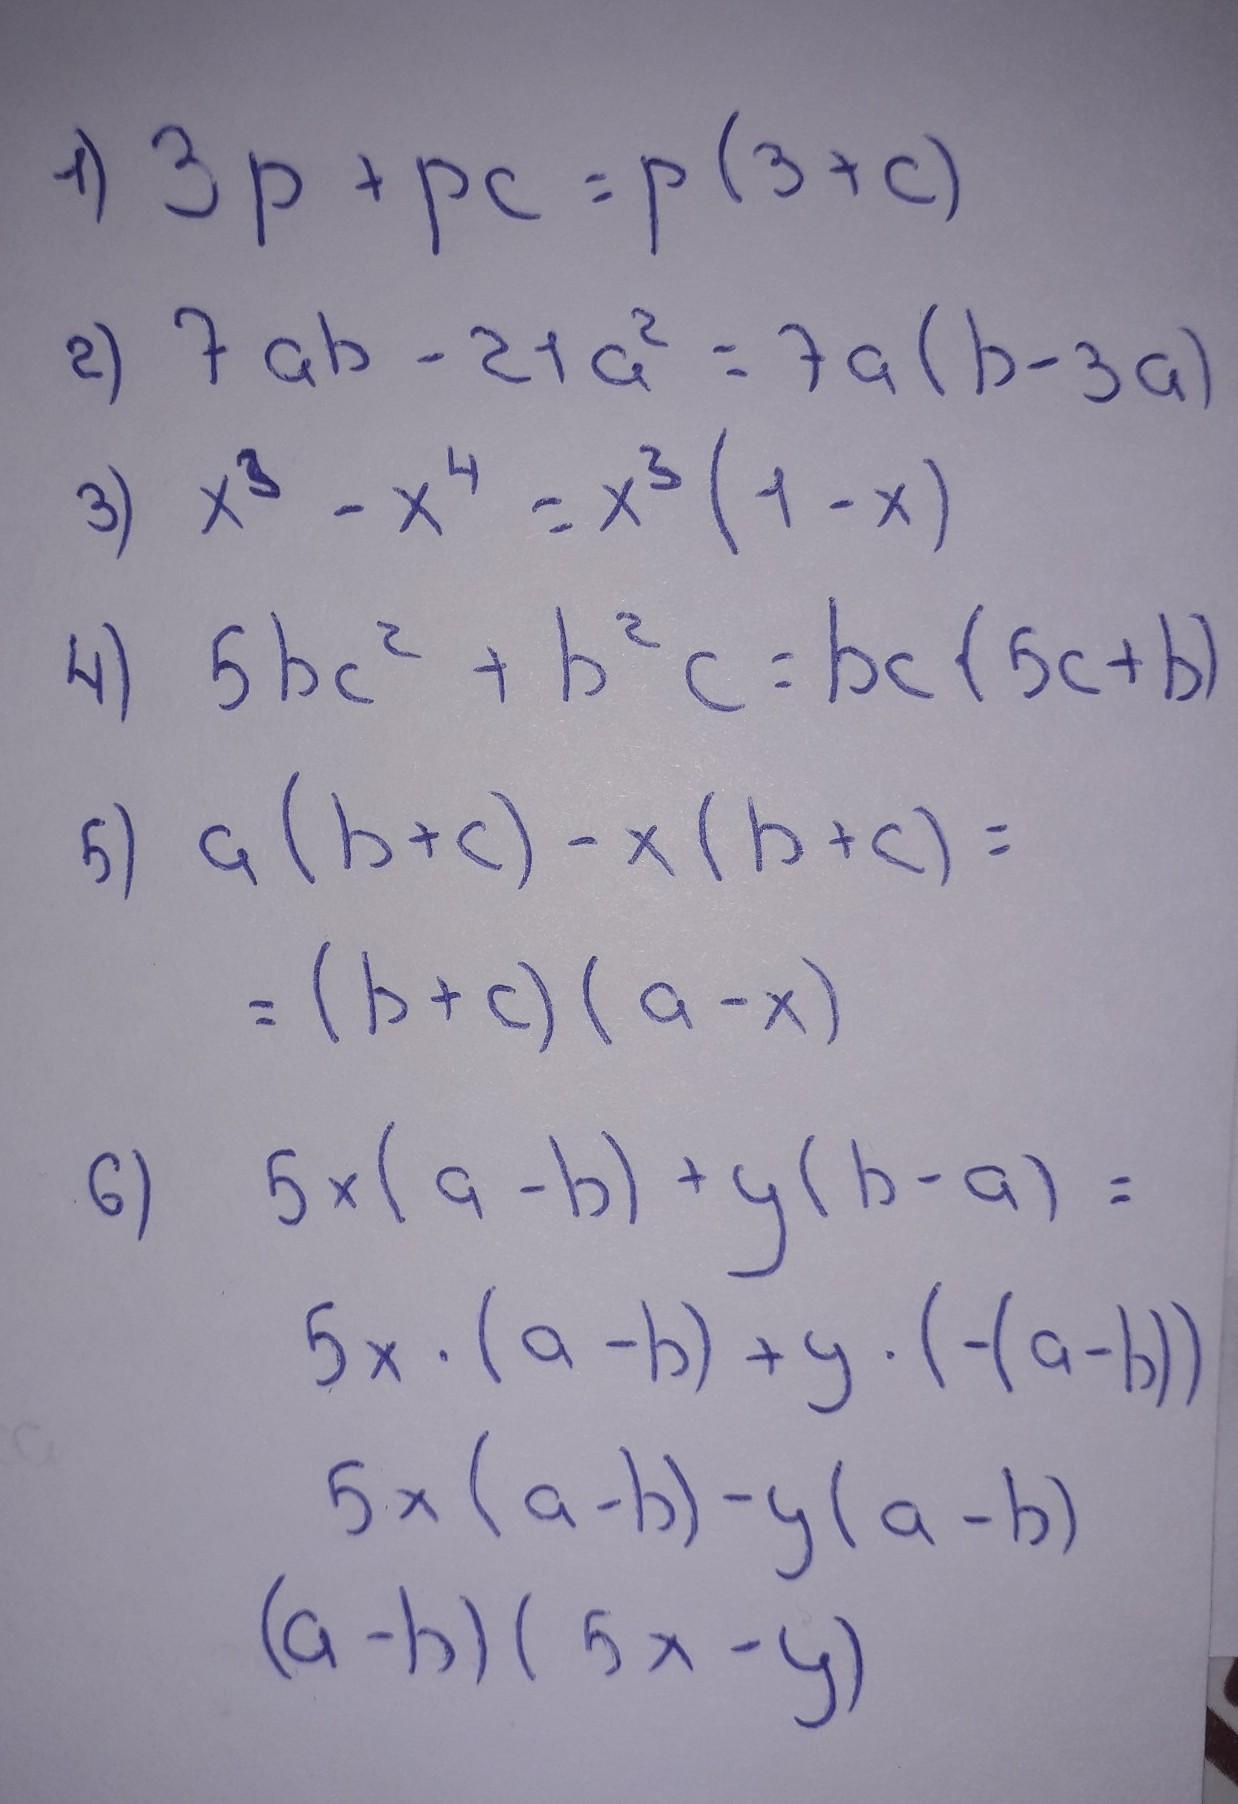 1) 3p + pc = p(3+c)
2) 7ab - 21a² = 7a(b-3a)
3) x³ - x⁴ = x³(1-x)
4) 5bc² + b²c = bc(5c+b)
5) a(b+c) - x(b+c) =
= (b+c)(a-x)
6) 5x(a-b) + y(b-a) =
5x·(a-b) + y·(-(a-b))
5x(a-b) - y(a-b)
(a-b)(5x-y)